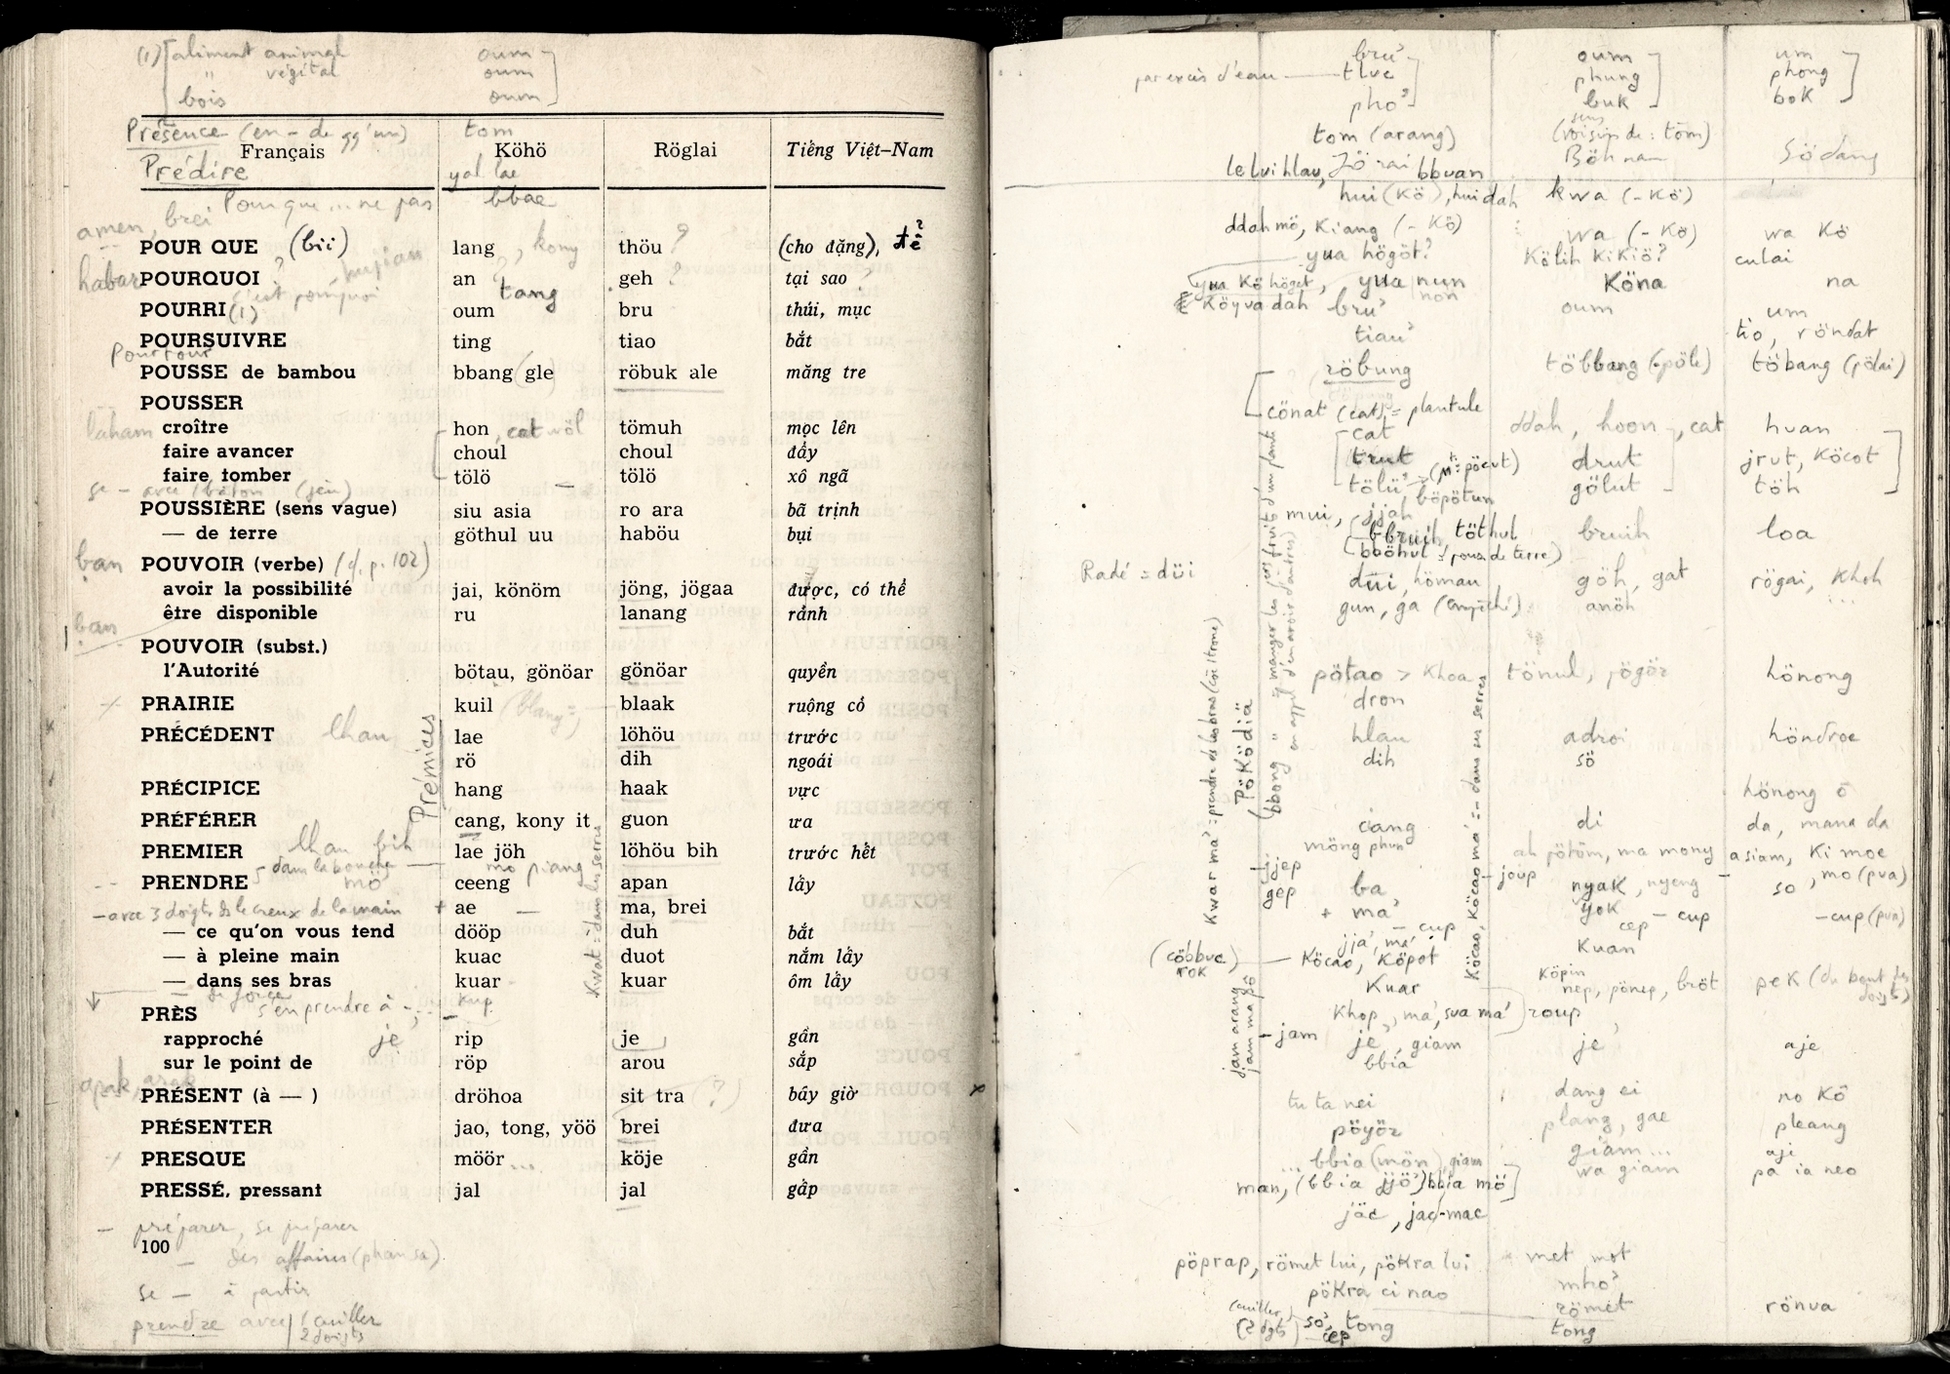 (1) aliment animal oum
" végétal oum
bois oum
Présence (en - de qq'un) tom
Français Köhö Röglai Tiếng Việt-Nam
Prédire yal lae
Pourque... ne pas bbae
amen, brei
POUR QUE (bii) lang , kony thöu ? (cho đặng), để
habar POURQUOI ? an ? geh ? tại sao ?
c'est pourquoi tang
POURRI (1) oum bru thúi, mục
POURSUIVRE ting tiao bắt
Pourtour
POUSSE de bambou bbang (gle röbuk ale măng tre
POUSSER
laham croître hon , cat wöl tömuh mọc lên
faire avancer choul choul đẩy
faire tomber tölö tölö xô ngã
se - avec 1 bâton (jên)
POUSSIÈRE (sens vague) siu asia ro ara bã trịnh
— de terre göthul uu haböu bụi
ban POUVOIR (verbe) (d. p. 102)
avoir la possibilité jai, könöm jöng, jögaa được, có thể
être disponible ru lanang rảnh
ban
POUVOIR (subst.)
l'Autorité bötau, gönöar gönöar quyền
PRAIRIE kuil (blang =) blaak ruộng cỏ
PRÉCÉDENT lhau lae löhöu trước
rö dih ngoái
Prémices
PRÉCIPICE hang haak vực
PRÉFÉRER cang, kony it guon ưa
lhau bih
PREMIER lae jöh löhöu bih trước hết
- dans la bouche mö piang
PRENDRE mö ceeng apan lấy
- avec 3 doigts ds le creux de la main + ae — ma, brei
— ce qu'on vous tend dööp duh bắt
— à pleine main kuac duot nắm lấy
— dans ses bras kuar kuar ôm lấy
Kwat : dans les serres
- de force kup
s'en prendre à -
PRÈS
rapproché je rip je gần
sur le point de röp arou sắp
apak, arak
PRÉSENT (à — ) dröhoa sit tra (?) bây giờ
PRÉSENTER jao, tong, yöö brei đưa
PRESQUE möör ... köje gần
PRESSÉ, pressant jal jal gấp
— préparer, se préparer
100
— des affaires (phan sa).
se — à partir
prendre avec / 1 cuiller
2 doigts
bru' oum um
par excès d'eau — tluc phung phong
pho' buk bok
tom (arang) (voisin de : töm)
sens
le lui hlau, Jö rai bbuan Böhnan Södang
hui (Kö), hui dah kwa (- Kö)
ddah mö, Kiang (- Kö) wa (- Kö) wa Kö
yua högöt? Kölih KiKiö? culai
yua Kö högöt, yua nun Köna na
non
Köyua dah bru' oum um
tiau' tio, röndat
röbung többang (pöle) töbang (pölai)
cönat (cat) = plantule
cat ddah, hoon, cat huan
trut drut jrut, Köcot
tölü' (Mt : pöcut) gölut töh
böpötun
mui, jjah
bbruih, töthul bruih loa
(baöhul = pous. de terre)
Radé = düi düi, hömau, göh, gat rögai, Khoh
gun, ga (empêché) anöh ...
pötao > Khoa tönul, jögör hönong
dron
hlau adroi höndroe
dih sö
hönong ö
ciang di da, mana da
möng phun ah pötöm, ma mong asiam, Ki moe
- jjep - joup
gep ba nyak, nyeng so, mo (pua)
+ ma' yok
- cup cep - cup - cup (pua)
jja', ma' Kuan
(cöbbuc) — Köcao, Köpot
rok Köpin
Kuar nep, pönep, bröt pek (du bout des doigts)
Khop, ma', sua ma' roup
- jam je', giam je' aje
bbia
jam arang
jam ma pö
Kwar ma' : prendre ds les bras
PöKödiä
Köcao, Köcao ma' : - dans ses serres
tu ta nei dang ei no Kö
pöyör plang, gae pleang
... bbia (mön), giam giam ... aji
man, (bbia jjö') bbia mö wa giam pa ia neo
jäc, jac-mac
pöprap, römet lui, pökra lui met mot
pökra ci nao mho'
(cuiller) so', tong römet rönua
(2 dgts) — cep tong